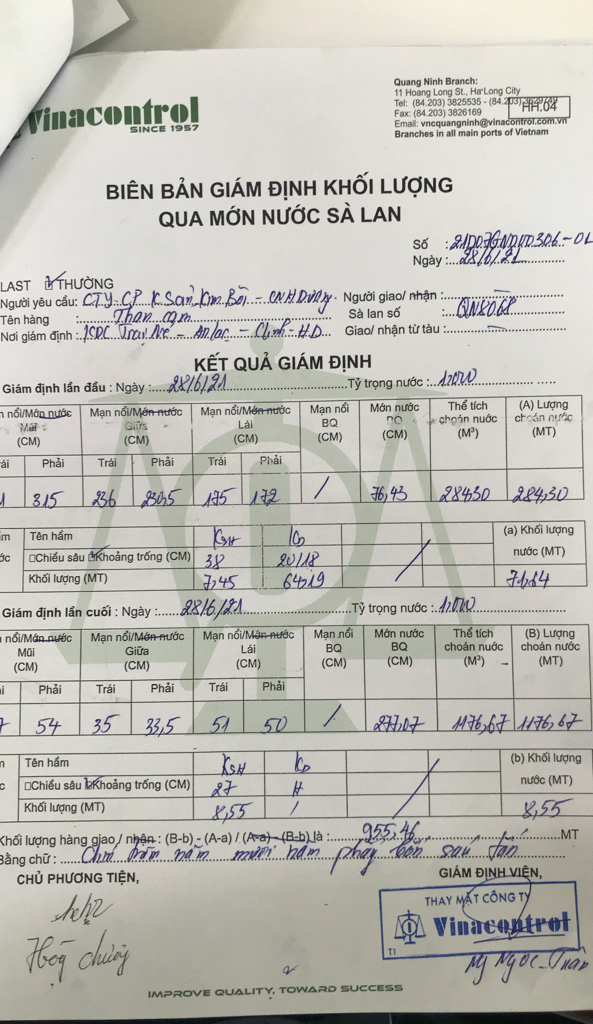 Vinacontrol
SINCE 1957
Quang Ninh Branch:
11 Hoang Long St., Ha Long City
Tel: (84.203) 3825535 - (84.203) 3829749
HH.04
Fax: (84.203) 3826169
Email: vncquangninh@vinacontrol.com.vn
Branches in all main ports of Vietnam
BIÊN BẢN GIÁM ĐỊNH KHỐI LƯỢNG
QUA MỚN NƯỚC SÀ LAN
Số :
Ngày : 28/6/21
LAST THƯỜNG
Người yêu cầu: CTY CP K Sản Kim Bôi - CN HDương Người giao/ nhận :
Tên hàng : Than cám Sà lan số : QN8068
Nơi giám định : - An lạc - - HD Giao/ nhận từ tàu :
KẾT QUẢ GIÁM ĐỊNH
Giám định lần đầu : Ngày : 28/6/21 Tỷ trọng nước : 1.000
nổi/Mớn nước Mũi (CM) Mạn nổi/Mớn nước Giữa (CM) Mạn nổi/Mớn nước Lái (CM) Mạn nổi BQ (CM) Mớn nước BQ (CM) Thể tích choán nước (M³) (A) Lượng choán nước (MT)
Phải Trái Phải Trái Phải
315 236 230,5 175 172 / 76,43 284,30 284,30
Tên hầm KSH Ko (a) Khối lượng nước (MT)
Chiều sâu Khoảng trống (CM) 38 20/18
Khối lượng (MT) 7,45 64,19 71,64
Giám định lần cuối : Ngày : 28/6/21 Tỷ trọng nước : 1.000
nổi/Mớn nước Mũi (CM) Mạn nổi/Mớn nước Giữa (CM) Mạn nổi/Mớn nước Lái (CM) Mạn nổi BQ (CM) Mớn nước BQ (CM) Thể tích choán nước (M³) (B) Lượng choán nước (MT)
Phải Trái Phải Trái Phải
54 35 33,5 51 50 / 277,07 1176,67 1176,67
Tên hầm KSH Ko (b) Khối lượng nước (MT)
Chiều sâu Khoảng trống (CM) 27 H
Khối lượng (MT) 8,55 / 8,55
Khối lượng hàng giao / nhận : (B-b) - (A-a) / (A-a) - (B-b) là : 955,46 MT
Bằng chữ : Chín trăm năm mươi năm phẩy bốn sáu tấn
CHỦ PHƯƠNG TIỆN, GIÁM ĐỊNH VIÊN,
THAY MẶT CÔNG TY
Vinacontrol
T1
Ng Ngọc Tuân
IMPROVE QUALITY, TOWARD SUCCESS